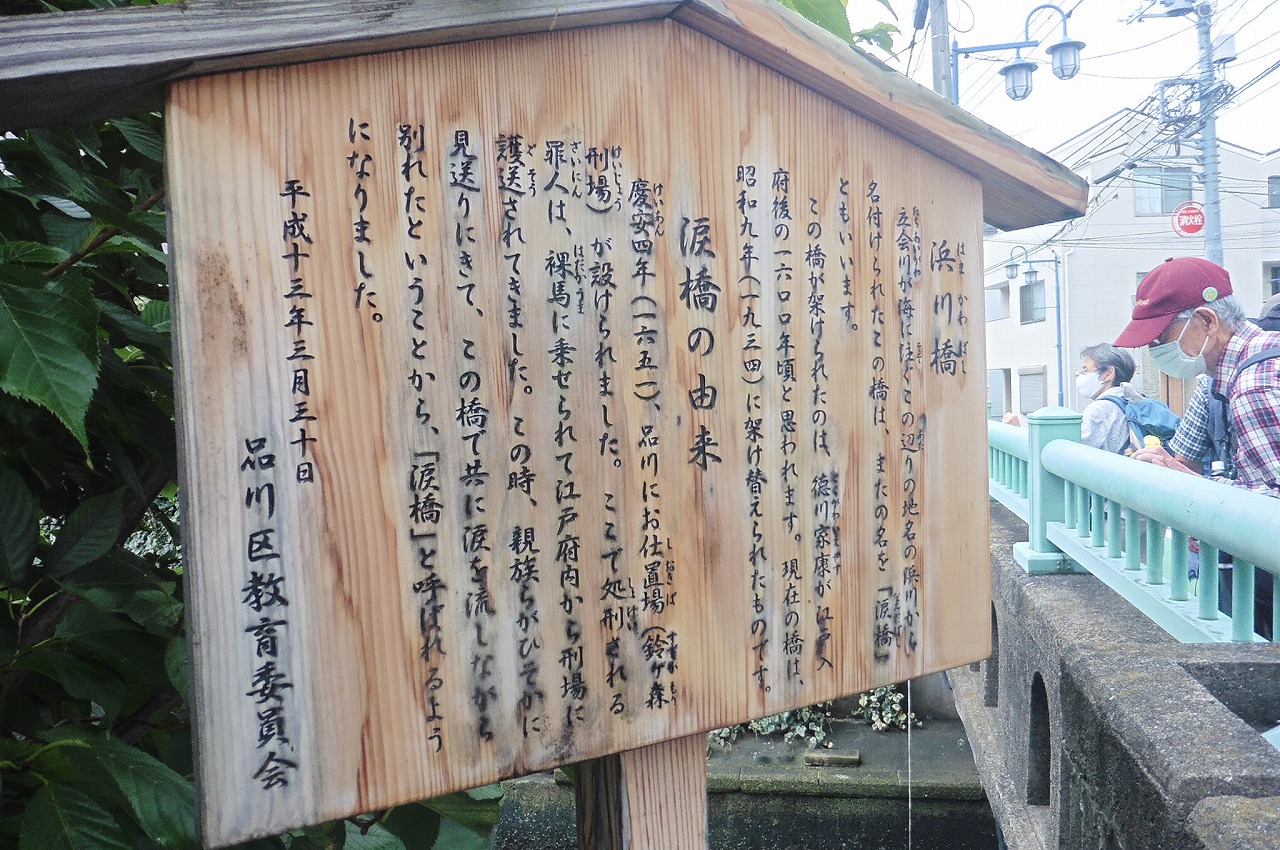 浜川橋
はまかわばし
立会川が海に注ぐこの辺りの地名の浜川から
名付けられたこの橋は、またの名を「涙橋」
ともいいます。
この橋が架けられたのは、徳川家康が江戸入
府後の一六〇〇年頃と思われます。現在の橋は、
昭和九年(一九三四)に架け替えられたものです。
涙橋の由来
慶安四年(一六五一)、品川にお仕置場(鈴ヶ森
けいあん しおきば すずがもり
刑場)が設けられました。ここで処刑される
けいじょう しょけい
罪人は、裸馬に乗せられて江戸府内から刑場に
ざいにん はだかうま
護送されてきました。この時、親族らがひそかに
ごそう
見送りにきて、この橋で共に涙を流しながら
別れたということから、「涙橋」と呼ばれるよう
になりました。
平成十三年三月三十日
品川区教育委員会
消火栓